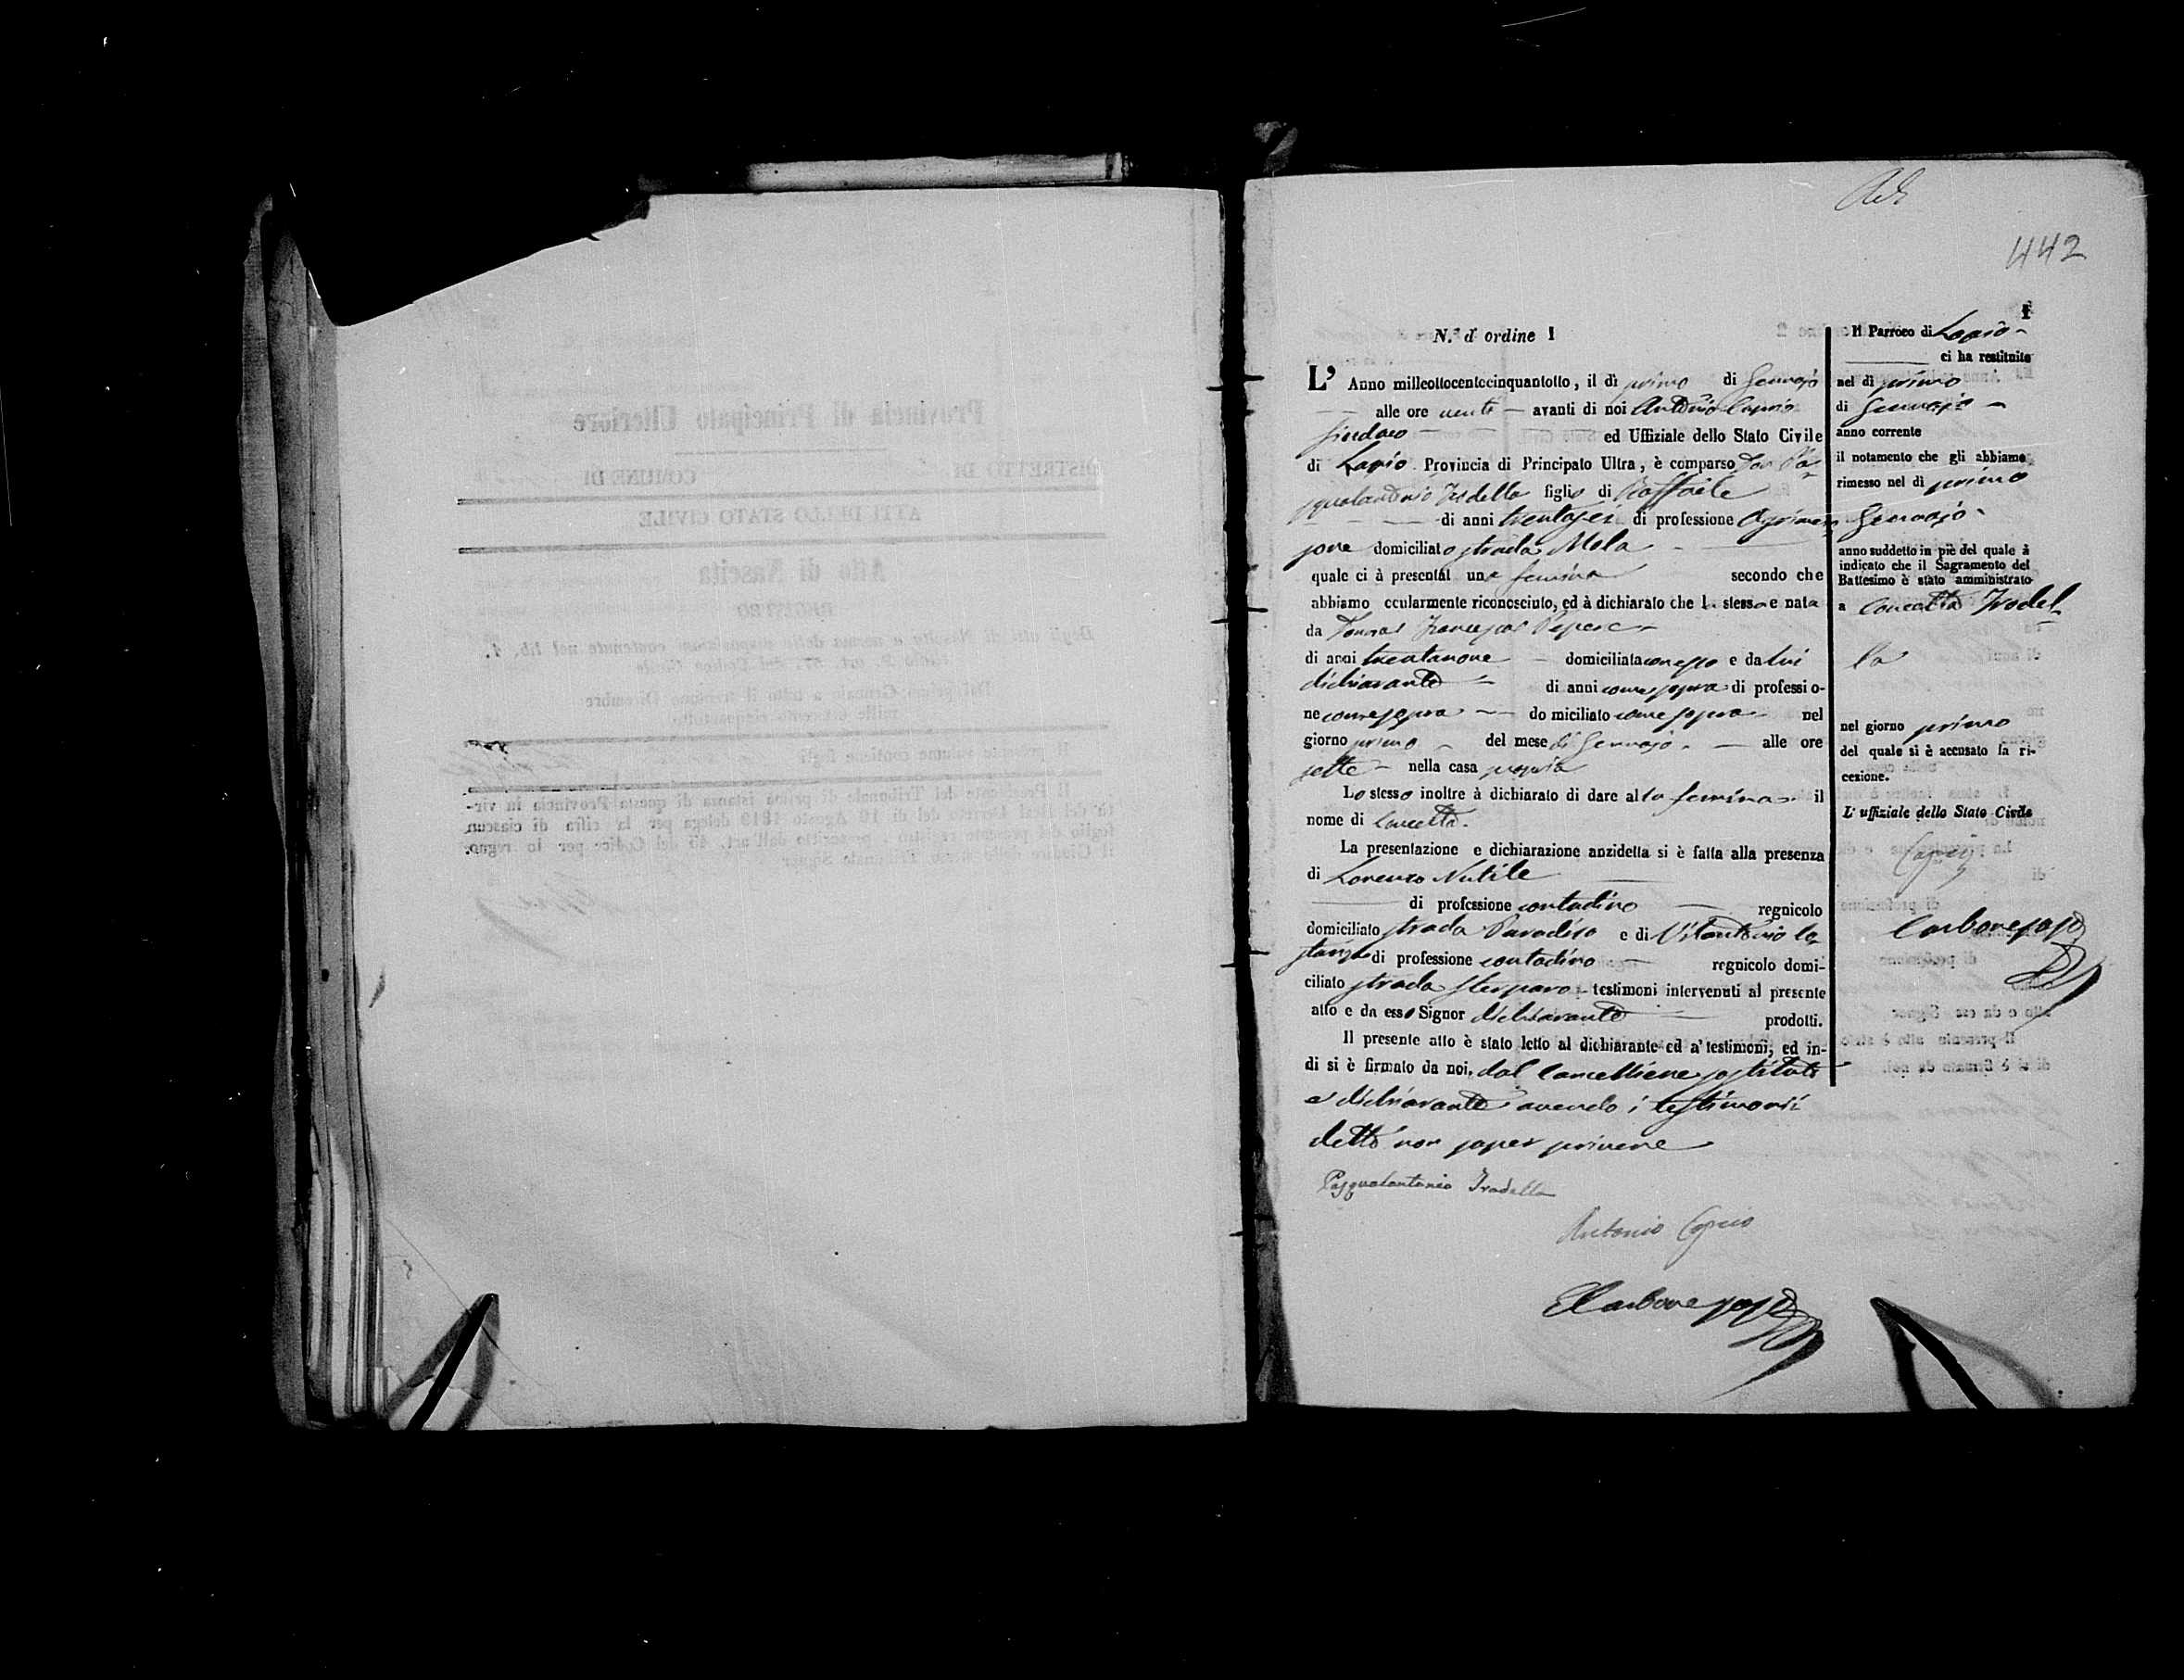 442
1
N.° d' ordine 1
L' Anno milleottocentocinquantotto, il dì primo di Gennajo
alle ore venti avanti di noi Antonio Caprio
Sindaco ed Uffiziale dello Stato Civile
di Lapio Provincia di Principato Ultra, è comparso Don Pa-
squalantonio Trodella figlio di Raffaele
di anni trentasei di professione Agrimen-
sore domiciliato strada Mela
quale ci à presentat una femina secondo che
abbiamo ocularmente riconosciuto, ed à dichiarato che la stessa e nata
da Donna Francesca Pepere
di anni trentanove domiciliata con esso e da lui
dichiarante di anni come sopra di professio-
ne come sopra domiciliato come sopra nel
giorno primo del mese di Gennajo alle ore
sette nella casa propria
Lo stesso inoltre à dichiarato di dare alla femina il
nome di Concetta.
La presentazione e dichiarazione anzidetta si è fatta alla presenza
di Lorenzo Nutile
di professione contadino regnicolo
domiciliato strada Paradiso e di Vitantonio Co-
stanza di professione contadino regnicolo domi-
ciliato strada Sterparo testimoni intervenuti al presente
atto e da esso Signor dichiarante prodotti.
Il presente atto è stato letto al dichiarante ed a' testimoni, ed in-
di si è firmato da noi, dal Cancelliere sostituto
e dichiarante avendo i testimonii
detto non saper scrivere
Pasqualantonio Trodella
Antonio Caprio
Carbone sost
Il Parroco di Lapio
ci ha restituito
nel dì primo
di Gennajo
anno corrente
il notamento che gli abbiamo
rimesso nel dì primo
Gennajo
anno suddetto in piè del quale à
indicato che il Sagramento del
Battesimo è stato amministrato
a Concetta Trodel-
la
nel giorno primo
del quale si è accusato la ri-
cezione.
L' uffiziale dello Stato Civile
Caprio
Carbone sost